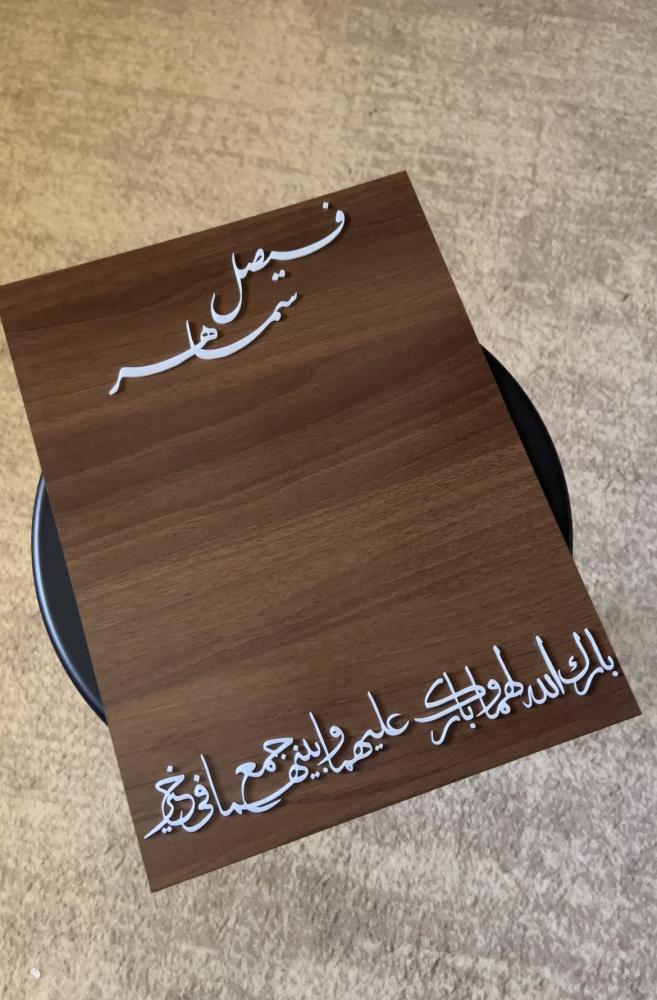 فيصل
سماهر
بارك الله لهما وبارك عليهما وابينهما جمع في خير